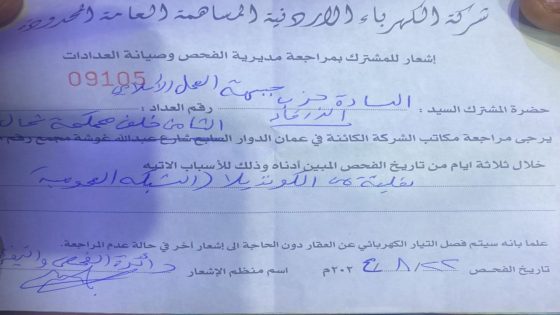 شركة الكهرباء الاردنية المساهمة العامة المحدودة
إشعار للمشترك بمراجعة مديرية الفحص وصيانة العدادات
09105
حضرة المشترك السيد : السادة حزب جبهة العمل الإسلامي رقم العداد :
الزرقاء خلف محكمة شمال
يرجى مراجعة مكاتب الشركة الكائنة في عمان الدوار السابع شارع عبدالله غوشة مجمع رقم
خلال ثلاثة ايام من تاريخ الفحص المبين أدناه وذلك للأسباب الاتيه
من (الشبكة العمومية
علما بانه سيتم فصل التيار الكهربائي عن العقار دون الحاجة الى إشعار آخر في حالة عدم المراجعة.
تاريخ الفحص ٢٢/٨/٢٠٢٤م اسم منظم الإشعار دائرة الفحص